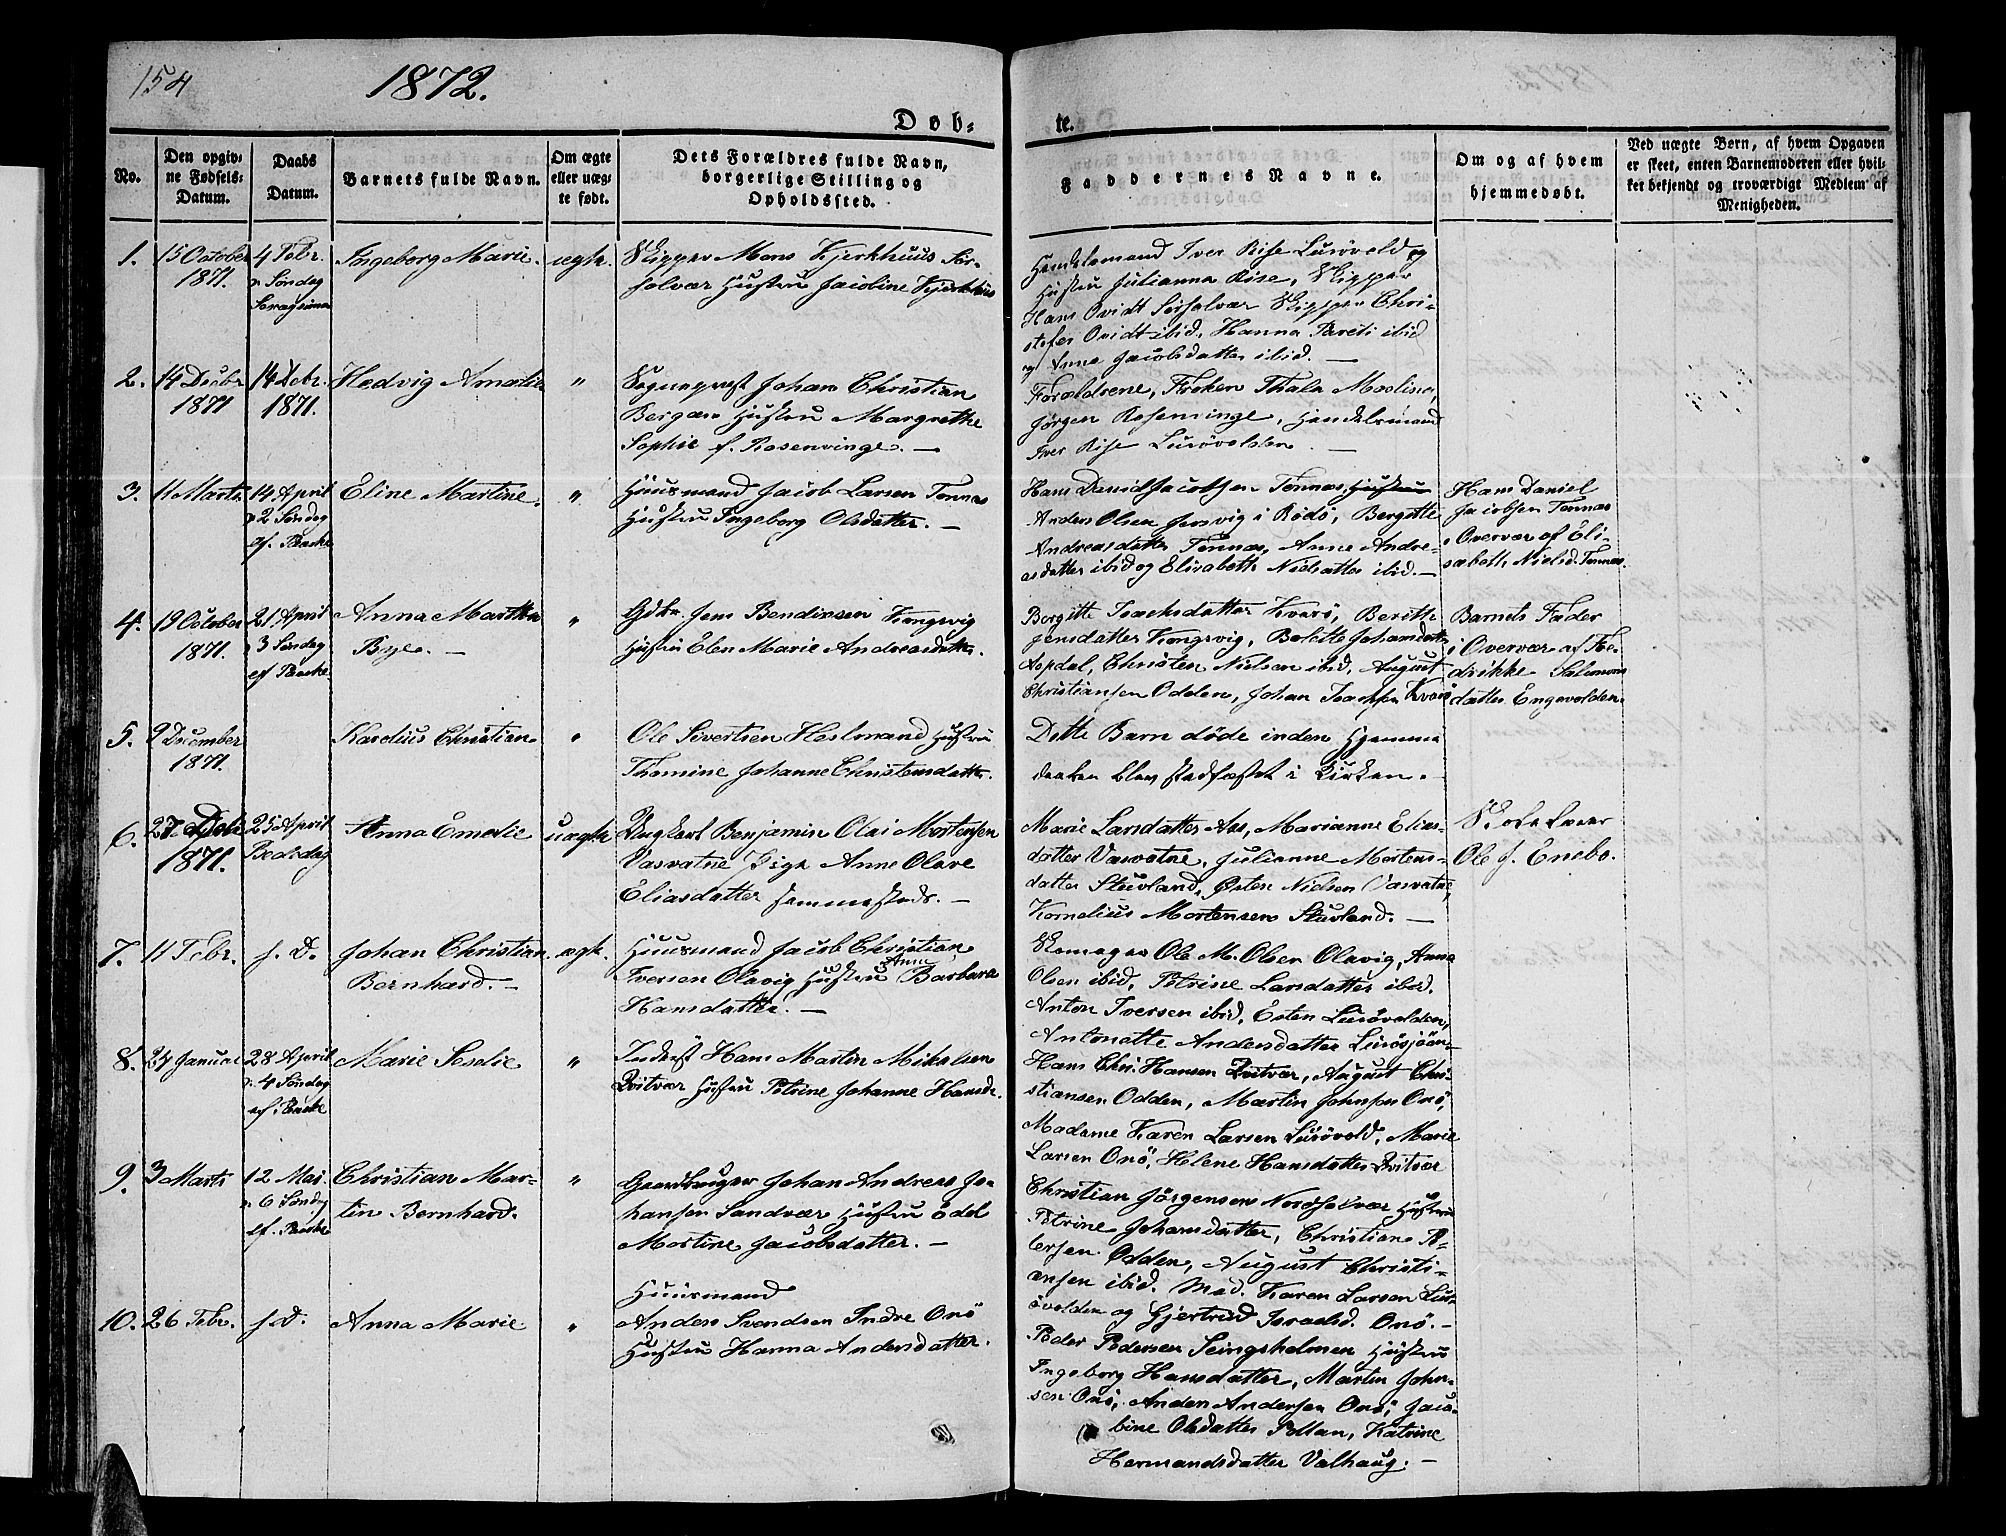 154
1872.
Døb-
te.
No.
Den opgiv-
ne Fødsels-
Datum.
Daabs
Datum.
Barnets fulde Navn.
Om ægte
eller uæg-
te født.
Dets Forældres fulde Navn,
borgerlige Stilling og
Opholdssted.
Faddernes Navne.
Om og af hvem
hjemmedøbt.
Ved uægte Børn, af hvem Opgaven
er skeet, enten Barnemoderen eller hvil-
ket bekjendt og troværdigt Medlem af
Menigheden.
1.
15 October
1871.
4 Febr.
Søndag
Ingeborg Marie.
ægte.
Skipper Mons Kjerkhuus Sør-
solvær Hustru Jacoline Kjerkhus
Handelsmand Iver Rise Lurövold og
Hustru Julianna Rise, Skipper
Hans Qvidt Sørsolvær Skipper Chri-
stofer Qvidt ibid, Hanna ibid
og Anna Jacobsdatter ibid. —
2.
14 Decbr
1871
14 Febr.
1871.
Hedvig Amalia
"
Sogneprest Johan Christian
Bergan Hustru Margrethe
Sophie f. Rosenvinge. —
Forældrene, Frøken Thala
Jørgen Rosenvinge, Handelsmand
Iver Rise Lurövolden —
3.
11 Marts
14 April
2 Søndag
ef. Paaske
Eline Martine.
"
Huusmand Jacob Larsen Tonnæs
Hustru Ingeborg Olsdatter. —
Hans Daniel Jacobsen Tonnæs Hustru
Anders Olsen Jersvig i Rödö, Bergitte
Andreasdatter Tonnæs, Anne Andre-
asdatter ibid og Elisabeth Nielsdatter ibid. —
Hans Daniel
Jacobsen Tonnæs
i Overvær af Eli-
sabeth Nielsd. Tonnæs.
4.
19 October
1871.
21 April
3 Søndag
ef Paaske
Anna Martha
Bye. —
"
Gdbr. Jens Bendixsen Kongsvig
Hustru Elen Marie Andreasdatter.
Bergitte Isachsdatter Kvarö, Berith
Jensdatter Kongsvig, Johansdatter
Aspdal, Christen Nielsen ibid, August
Christiansen Odden, Johan Isachsen Kvarö
Barnets Fader
i Overvær af Fre-
drikke Salomons
datter Engevolden.
5.
9 December
1871.
Karelius Christian
"
Ole Sivertsen Hestmand Hustru
Thomine Johanne Christensdatter.
Dette Barn döde inden Hjemme
daaben blev stadfæstet i Kirken. -
6.
27 Dcbr
1871.
25 April
Bededag
Anna Emelie
uægte
Ungkarl Benjamin Olai Mortensen
Vasvatne Pige Anne Olave
Eliasdatter sammesteds. —
Marie Larsdatter Aas, Marianne Elias-
datter Vasvatne, Julianne Mortens-
datter Stuvland, Østen Nielsen Vasvatne,
Kornelius Mortensen Stuvland. —
Skolelærer
Ole J. Enebo.
7.
11 Febr.
s. D.
Johan Christian
Bernhard. —
ægte.
Huusmand Jacob Christian
Iversen Olavig Hustru Anne Barbara
Hansdatter. —
Skomager Ole M. Olsen Olavig, Anna
Olsen ibid, Petrine Larsdatter ibid.
Anton Iversen ibid, Esten Lurövolden,
Antonette Andersdatter Lurösjöen —
8.
24 Januar
28 April
4 Søndag
ef. Paaske
Marie Seselie
"
Inderst Hans Martin Mikalsen
Qvitvær Hustru Petrine Johanne Hansd.
Hans Chr. Hansen Qvitvær, August Chri-
stiansen Odden, Martin Johnsen Onö,
Madame Karen Larsen Lurövold, Marie
Larsen Onö, Helene Hansdatter Qvitvær
9.
3 Marts
12 Mai
6 Søndag
ef. Paaske
Christian Mar-
tin Bernhard.
"
Gaardbruger Johan Andreas Jo-
hansen Sandvær Hustru Odel
Martine Jacobsdatter. —
Christian Jörgensen Nordsolvær Hustru
Petrine Johansdatter, Christian Pe-
tersen Odden, August Christi-
ansen ibid. Mad. Karen Larsen Lur-
övolden og Gjertrud Israelsd. Onö. —
10.
26 Febr.
s. D.
Anna Marie
"
Huusmand
Anders Svendsen Indre Onö
Hustru Hanna Andersdatter.
Peder Pedersen Selngsholmen Hustru
Ingeborg Hansdatter, Martin John-
sen Onö, Anders Andersen Onö, Jaco-
bine Olsdatter Pollan, Katrine
Hermandsdatter Valhaug. —